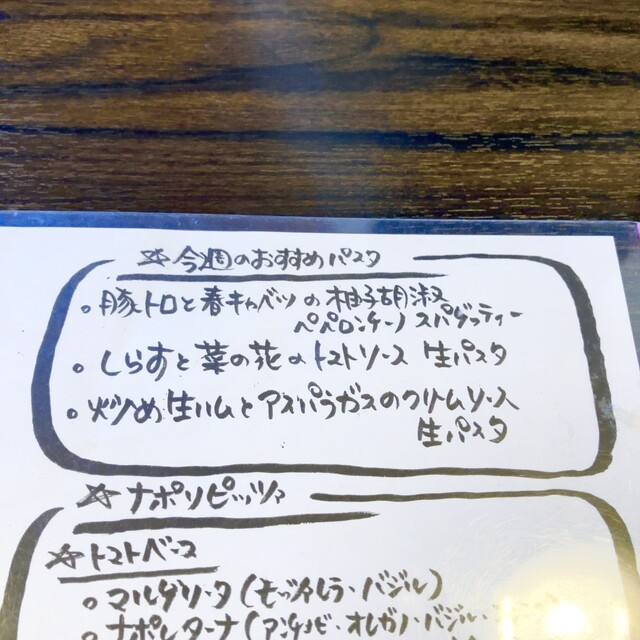 ☆今週のおすすめパスタ
。豚トロと春キャベツの柚子胡淑
ペペロンチーノ スパゲッティー
。しらすと菜の花のトマトソース 生パスタ
。炒め生ハムとアスパラガスのクリームソース
生パスタ
☆ナポリピッツァ
☆トマトベース
。マルゲリータ(モッツァレラ・バジル)
。ナポレターナ(アンチョビ・オレガノ・バジル・